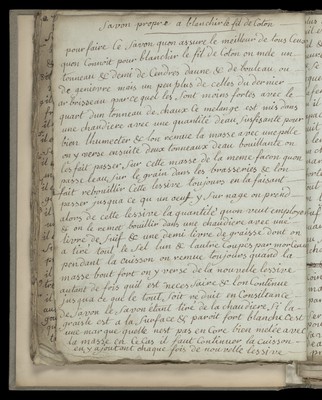 Savon propre a blanchir le fil de Coton
pour faire Ce Savon quon assure le meilleur de tous Ceux
quon Connoit pour blanchir le fil de Coton on mele un
tonneau & demi de Cendres daune & de bouleau, ou
De genievre mais un peu plus de Celles du dernier
arboisseau parce quel les Sont moins fortes avec le
quart dun tonneau de chaux Ce melange est mis dans
une chaudiere avec une quantité deau Suffisante pour
bien lhumecter & lon remue la masse avec une palle
on y verse ensuite deux tonneaux deau bouillante on
les fait passer Sur cette masse de la meme facon quon
passe leau Sur le grain dans les brasseries & lon
fait rebouillir Cette lessive toujours en la faisant
passer jusqua ce qu un oeuf y Surnage on prend
alors de cette lessive la quantité quon veut employer
& on le remet bouillir dans une chaudiere avec une
livre de Suif & une demi livre de graisse dont on
a tiré tout le Sel lun & lautre Coupés par morceaux
pendant la Cuisson on remue toujours quand la
masse bout fort on y verse de la nouvelle lessive
autant de fois quil est necessaire & lon Continue
jusqua ce que le tout Soit reduit en Consistence
de Savon le Savon étant tiré de la chaudiere Si la
graisse est a la Surface & paroit fort blanche Cest
une marque quelle nest pas en Core bien mélée avec
la masse en Ce Cas il faut Continuer la Cuisson
en y ajoutant chaque fois de nouvelle lessive